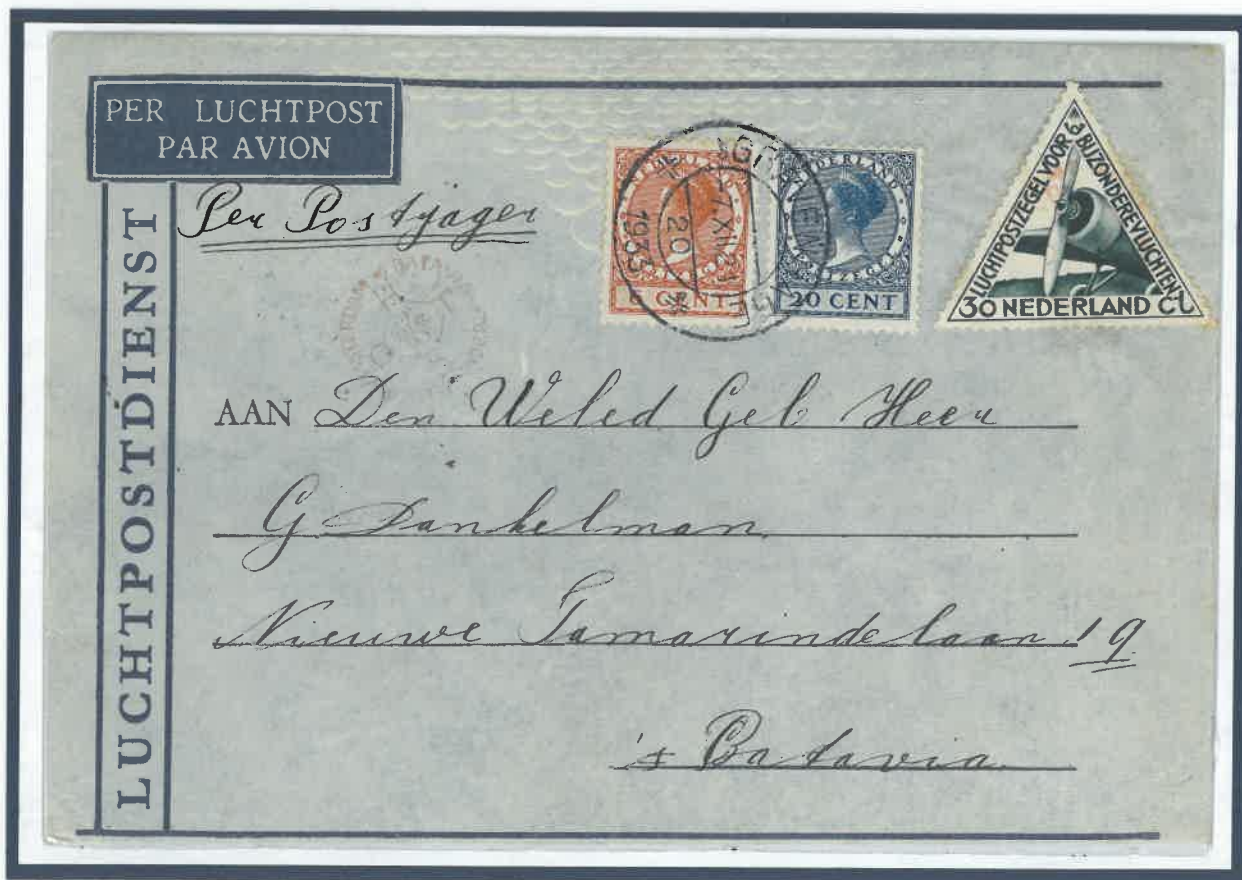 PER LUCHTPOST
PAR AVION
LUCHTPOSTDIENST
Per Postjager
NEDERLAND
CENT
NEDERLAND
POSTZEGEL
20 CENT
7 XII
20
1933
LUCHTPOSTZEGEL VOOR BIJZONDERE VLUCHTEN
30 NEDERLAND Ct
BATAVIA
AAN Den Weled Geb Heer
G Dankelman
Nieuwe Tamarindelaan 19
Batavia